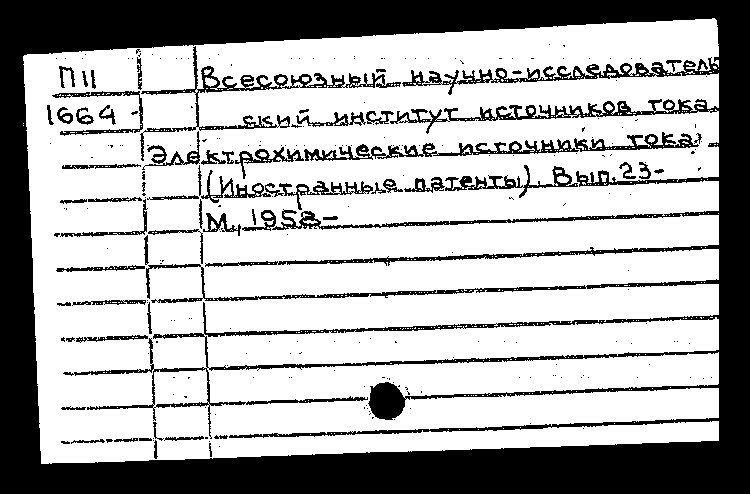 П11 Всесоюзный научно-исследователь
1664- ский институт источников тока.
Электрохимические источники тока
(Иностранные патенты). Вып. 23-
М., 1958-